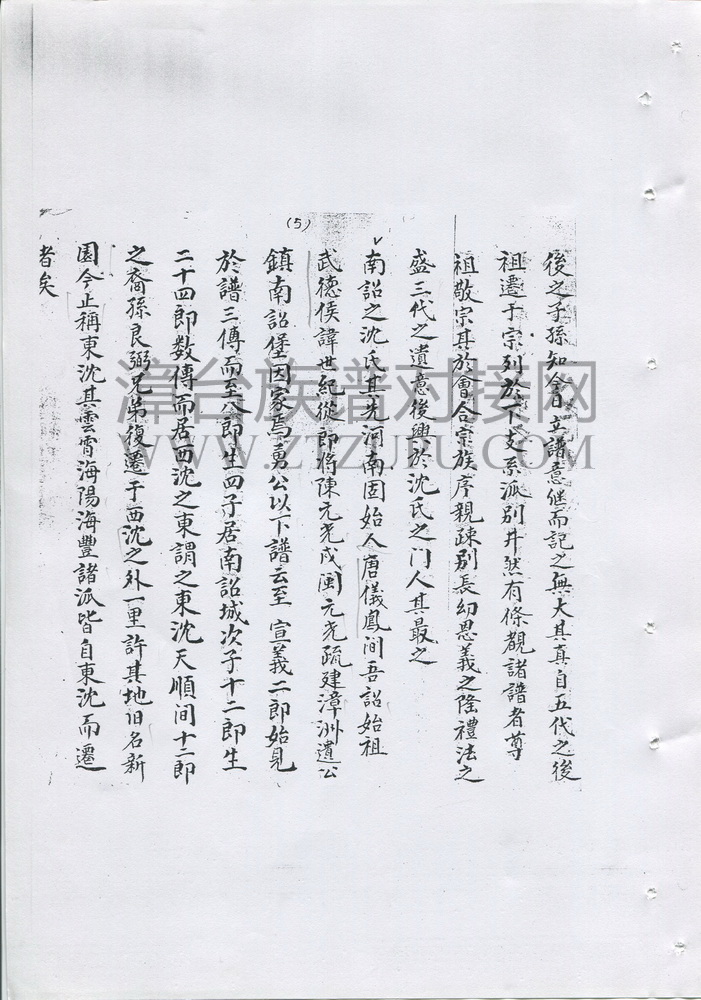 (5)
後之子孫知今日立譜意继而記之無大其真自五代之後
祖遷于宗列於下支系派別井然有條覩諸譜者尊
祖敬宗其於會合宗族序親疎别長幼恩義之隆禮法之
盛三代之遺意後興於沈氏之门人其最之
南詔之沈氏其先河南固始人唐儀鳳间吾詔始祖
武德侯諱世紀從即将陳元光戍闽元光疏建漳洲遺公
鎮南詔堡因家焉勇公以下譜云至宣義二郎始見
於譜三傳而至八郎生四子居南詔城次子十二郎生
二十四郎数傳而居西沈之東謂之東沈天順间十二郎
之裔孫良弼兄弟復遷于西沈之外一里許其地旧名新
園今止稱東沈其雲霄海陽海豐諸派皆自東沈而遷
者矣
漳台族谱对接网
WWW.ZTZUPU.COM